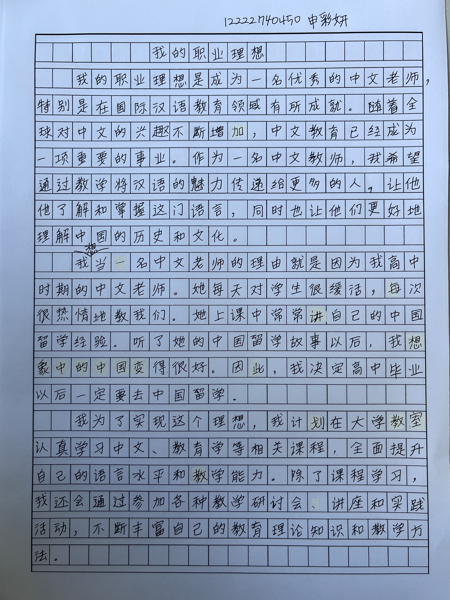 12222740450 申彩妍
我的职业理想
我的职业理想是成为一名优秀的中文老师，
特别是在国际汉语教育领域有所成就。随着全
球对中文的兴趣不断增加，中文教育已经成为
一项重要的事业。作为一名中文教师，我希望
通过教学将汉语的魅力传递给更多的人，让他
他了解和掌握这门语言，同时也让他们更好地
理解中国的历史和文化。
我想当一名中文老师的理由就是因为我高中
时期的中文老师。她每天对学生很缓活，每次
很热情地教我们。她上课中常常讲自己的中国
留学经验。听了她的中国留学故事以后，我想
象中的中国变得很好。因此，我决定高中毕业
以后一定要去中国留学。
我为了实现这个理想，我计划在大学教室
认真学习中文、教育学等相关课程，全面提升
自己的语言水平和教学能力。除了课程学习，
我还会通过参加各种教学研讨会、讲座和实践
活动，不断丰富自己的教育理论知识和教学方
法。